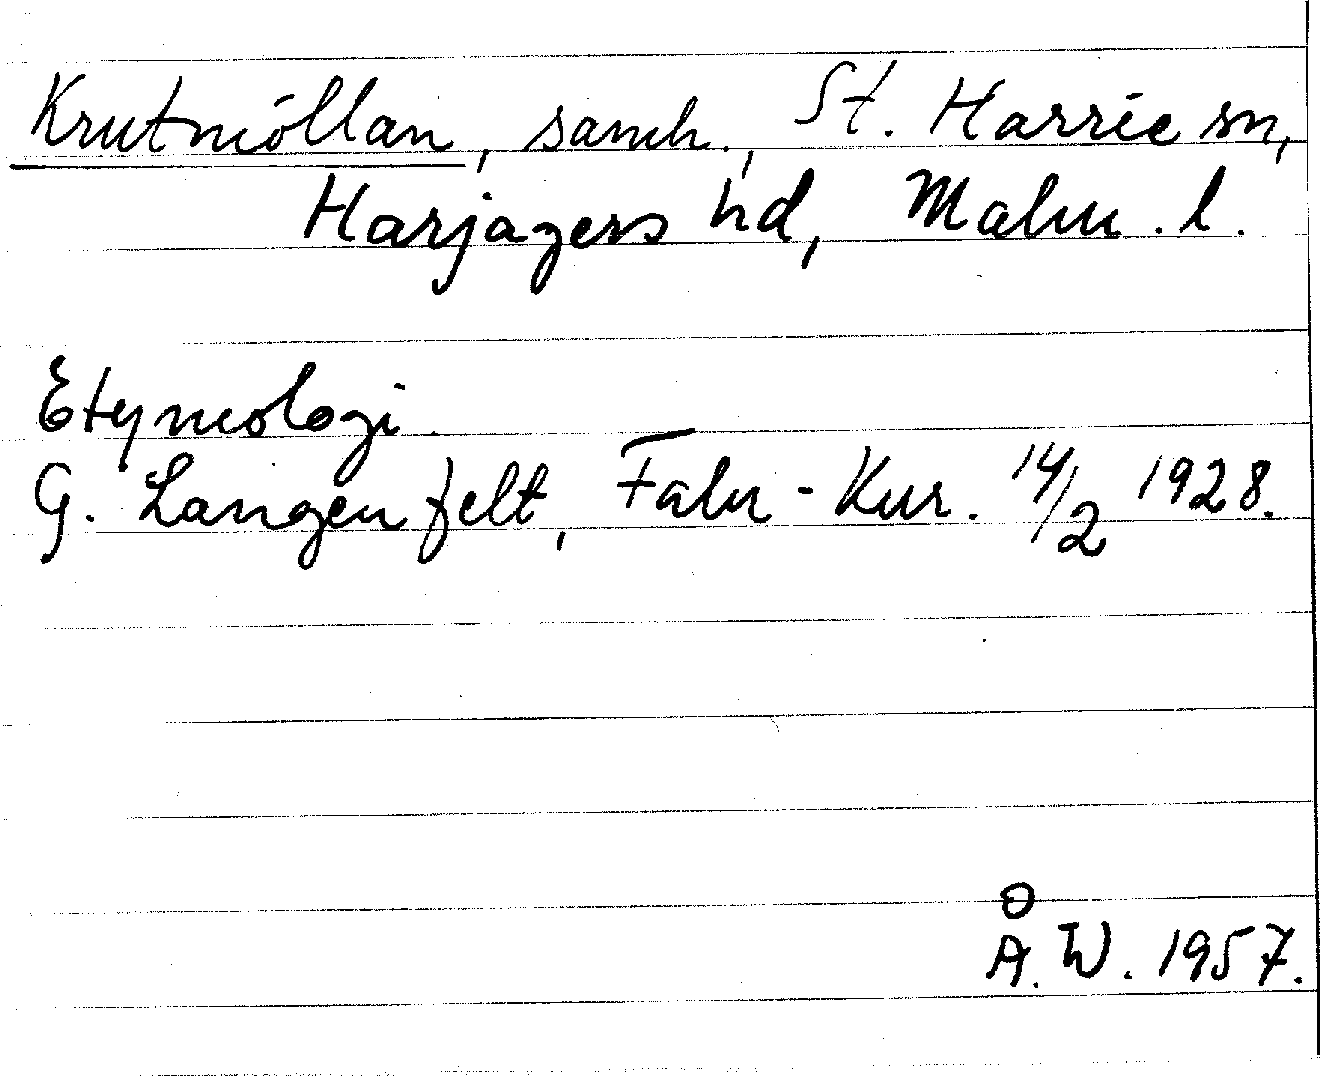 Krutmöllan, samh., St. Harrie sn,
Harjagers hd, Malm. l.
Etymologi.
G. Langenfelt, Falu-Kur. 14/2 1928.
Å. W. 1957.